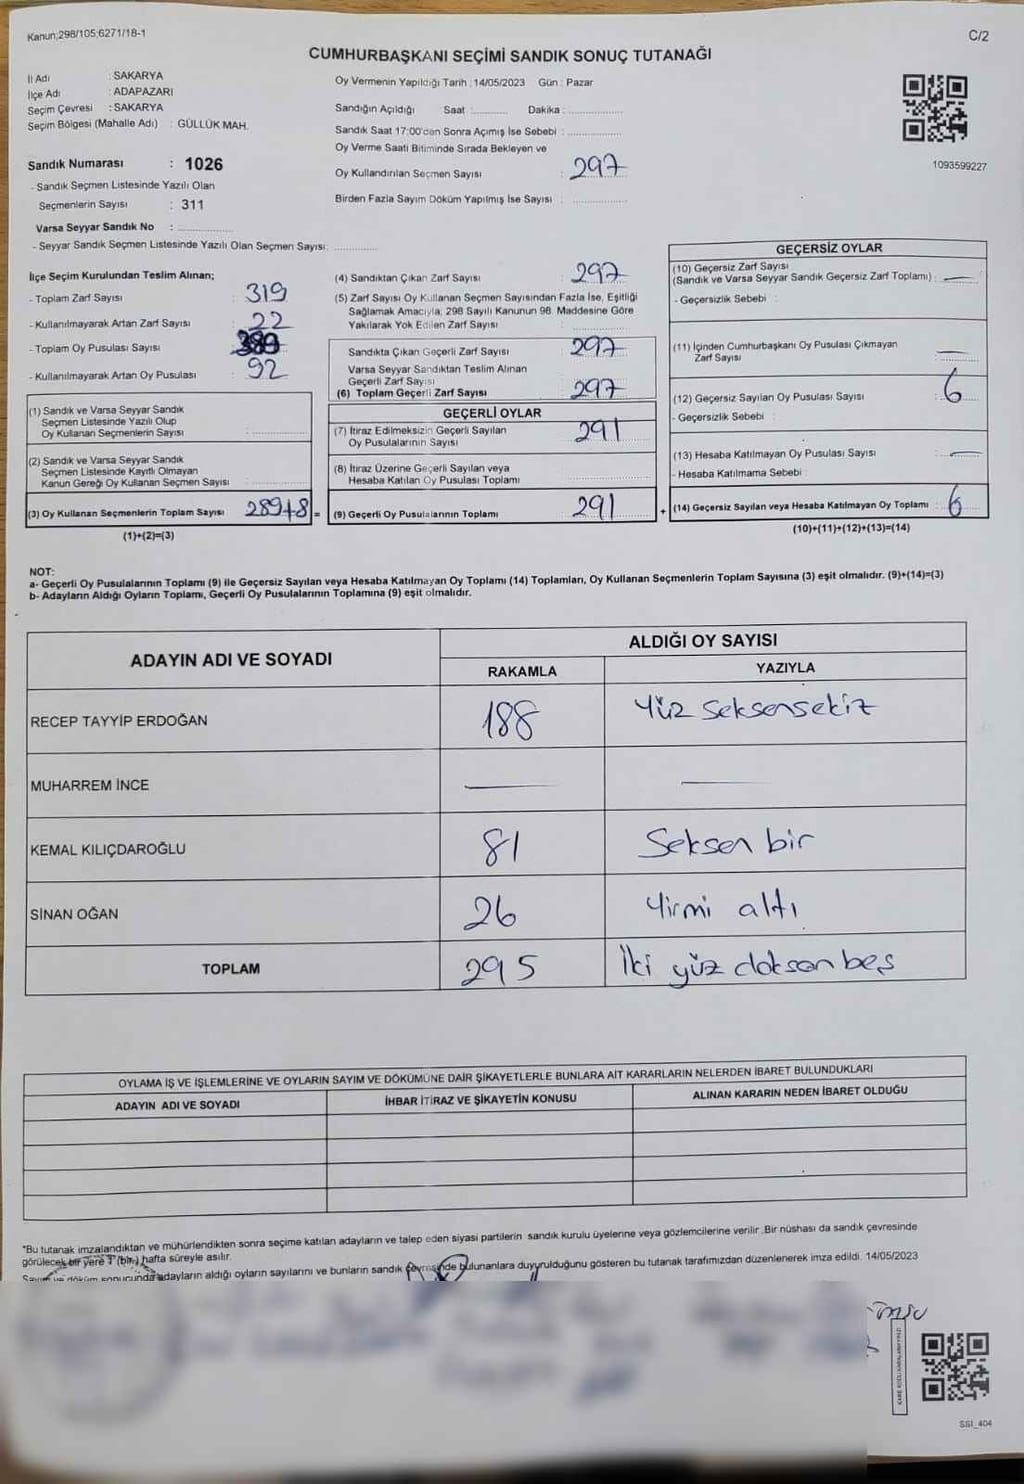 Kanun;298/105;6271/18-1
C/2
CUMHURBAŞKANI SEÇİMİ SANDIK SONUÇ TUTANAĞI
İl Adı : SAKARYA
İlçe Adı : ADAPAZARI
Seçim Çevresi : SAKARYA
Seçim Bölgesi (Mahalle Adı) : GÜLLÜK MAH.
Oy Vermenin Yapıldığı Tarih : 14/05/2023 Gün : Pazar
Sandığın Açıldığı Saat : Dakika :
Sandık Saat 17:00'den Sonra Açımış İse Sebebi :
Oy Verme Saati Bitiminde Sırada Bekleyen ve
Oy Kullandırılan Seçmen Sayısı : 297
Birden Fazla Sayım Döküm Yapılmış İse Sayısı :
1093599227
Sandık Numarası : 1026
- Sandık Seçmen Listesinde Yazılı Olan
Seçmenlerin Sayısı : 311
Varsa Seyyar Sandık No :
- Seyyar Sandık Seçmen Listesinde Yazılı Olan Seçmen Sayısı:
İlçe Seçim Kurulundan Teslim Alınan;
- Toplam Zarf Sayısı : 319
- Kullanılmayarak Artan Zarf Sayısı : 22
- Toplam Oy Pusulası Sayısı :
- Kullanılmayarak Artan Oy Pusulası : 92
(1) Sandık ve Varsa Seyyar Sandık
Seçmen Listesinde Yazılı Olup
Oy Kullanan Seçmenlerin Sayısı :
(2) Sandık ve Varsa Seyyar Sandık
Seçmen Listesinde Kayıtlı Olmayan
Kanun Gereği Oy Kullanan Seçmen Sayısı :
(3) Oy Kullanan Seçmenlerin Toplam Sayısı 289+8 =
(1)+(2)=(3)
(4) Sandıktan Çıkan Zarf Sayısı : 297
(5) Zarf Sayısı Oy Kullanan Seçmen Sayısından Fazla İse, Eşitliği
Sağlamak Amacıyla, 298 Sayılı Kanunun 98. Maddesine Göre
Yakılarak Yok Edilen Zarf Sayısı :
Sandıkta Çıkan Geçerli Zarf Sayısı : 297
Varsa Seyyar Sandıktan Teslim Alınan
Geçerli Zarf Sayısı
(6) Toplam Geçerli Zarf Sayısı : 297
GEÇERLİ OYLAR
(7) İtiraz Edilmeksizin Geçerli Sayılan
Oy Pusulalarının Sayısı : 291
(8) İtiraz Üzerine Geçerli Sayılan veya
Hesaba Katılan Oy Pusulası Toplamı
(9) Geçerli Oy Pusulalarının Toplamı : 291 +
GEÇERSİZ OYLAR
(10) Geçersiz Zarf Sayısı
(Sandık ve Varsa Seyyar Sandık Geçersiz Zarf Toplamı) : —
- Geçersizlik Sebebi :
(11) İçinden Cumhurbaşkanı Oy Pusulası Çıkmayan
Zarf Sayısı : —
(12) Geçersiz Sayılan Oy Pusulası Sayısı : 6
- Geçersizlik Sebebi :
(13) Hesaba Katılmayan Oy Pusulası Sayısı : —
- Hesaba Katılmama Sebebi :
(14) Geçersiz Sayılan veya Hesaba Katılmayan Oy Toplamı : 6
(10)+(11)+(12)+(13)=(14)
NOT:
a- Geçerli Oy Pusulalarının Toplamı (9) ile Geçersiz Sayılan veya Hesaba Katılmayan Oy Toplamı (14) Toplamları, Oy Kullanan Seçmenlerin Toplam Sayısına (3) eşit olmalıdır. (9)+(14)=(3)
b- Adayların Aldığı Oyların Toplamı, Geçerli Oy Pusulalarının Toplamına (9) eşit olmalıdır.
ADAYIN ADI VE SOYADI
ALDIĞI OY SAYISI
RAKAMLA YAZIYLA
RECEP TAYYİP ERDOĞAN 188 Yüz Seksensekiz
MUHARREM İNCE — —
KEMAL KILIÇDAROĞLU 81 Seksen bir
SİNAN OĞAN 26 Yirmi altı
TOPLAM 295 İki yüz doksan beş
OYLAMA İŞ VE İŞLEMLERİNE VE OYLARIN SAYIM VE DÖKÜMÜNE DAİR ŞİKAYETLERLE BUNLARA AİT KARARLARIN NELERDEN İBARET BULUNDUKLARI
ADAYIN ADI VE SOYADI İHBAR İTİRAZ VE ŞİKAYETİN KONUSU ALINAN KARARIN NEDEN İBARET OLDUĞU
*Bu tutanak imzalandıktan ve mühürlendikten sonra seçime katılan adayların ve talep eden siyasi partilerin sandık kurulu üyelerine veya gözlemcilerine verilir .Bir nüshası da sandık çevresinde
görülecek bir yere 1 (bir) hafta süreyle asılır.
Sayım ve döküm sonucunda adayların aldığı oyların sayılarını ve bunların sandık çevresinde bulunanlara duyurulduğunu gösteren bu tutanak tarafımızdan düzenlenerek imza edildi. 14/05/2023
SSI_404